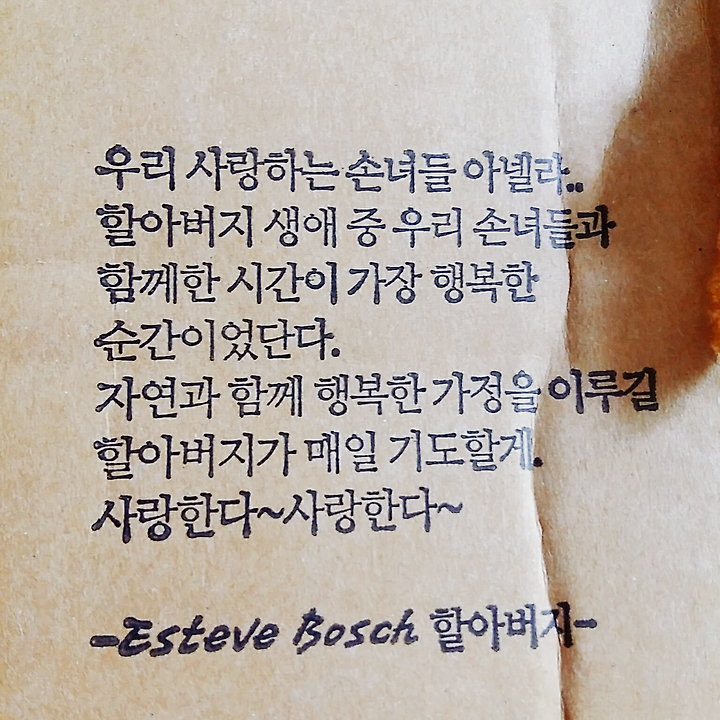 우리 사랑하는 손녀들 아넬라..
할아버지 생애 중 우리 손녀들과
함께한 시간이 가장 행복한
순간이었단다.
자연과 함께 행복한 가정을 이루길
할아버지가 매일 기도할게.
사랑한다~사랑한다~
-Esteve Bosch 할아버지-